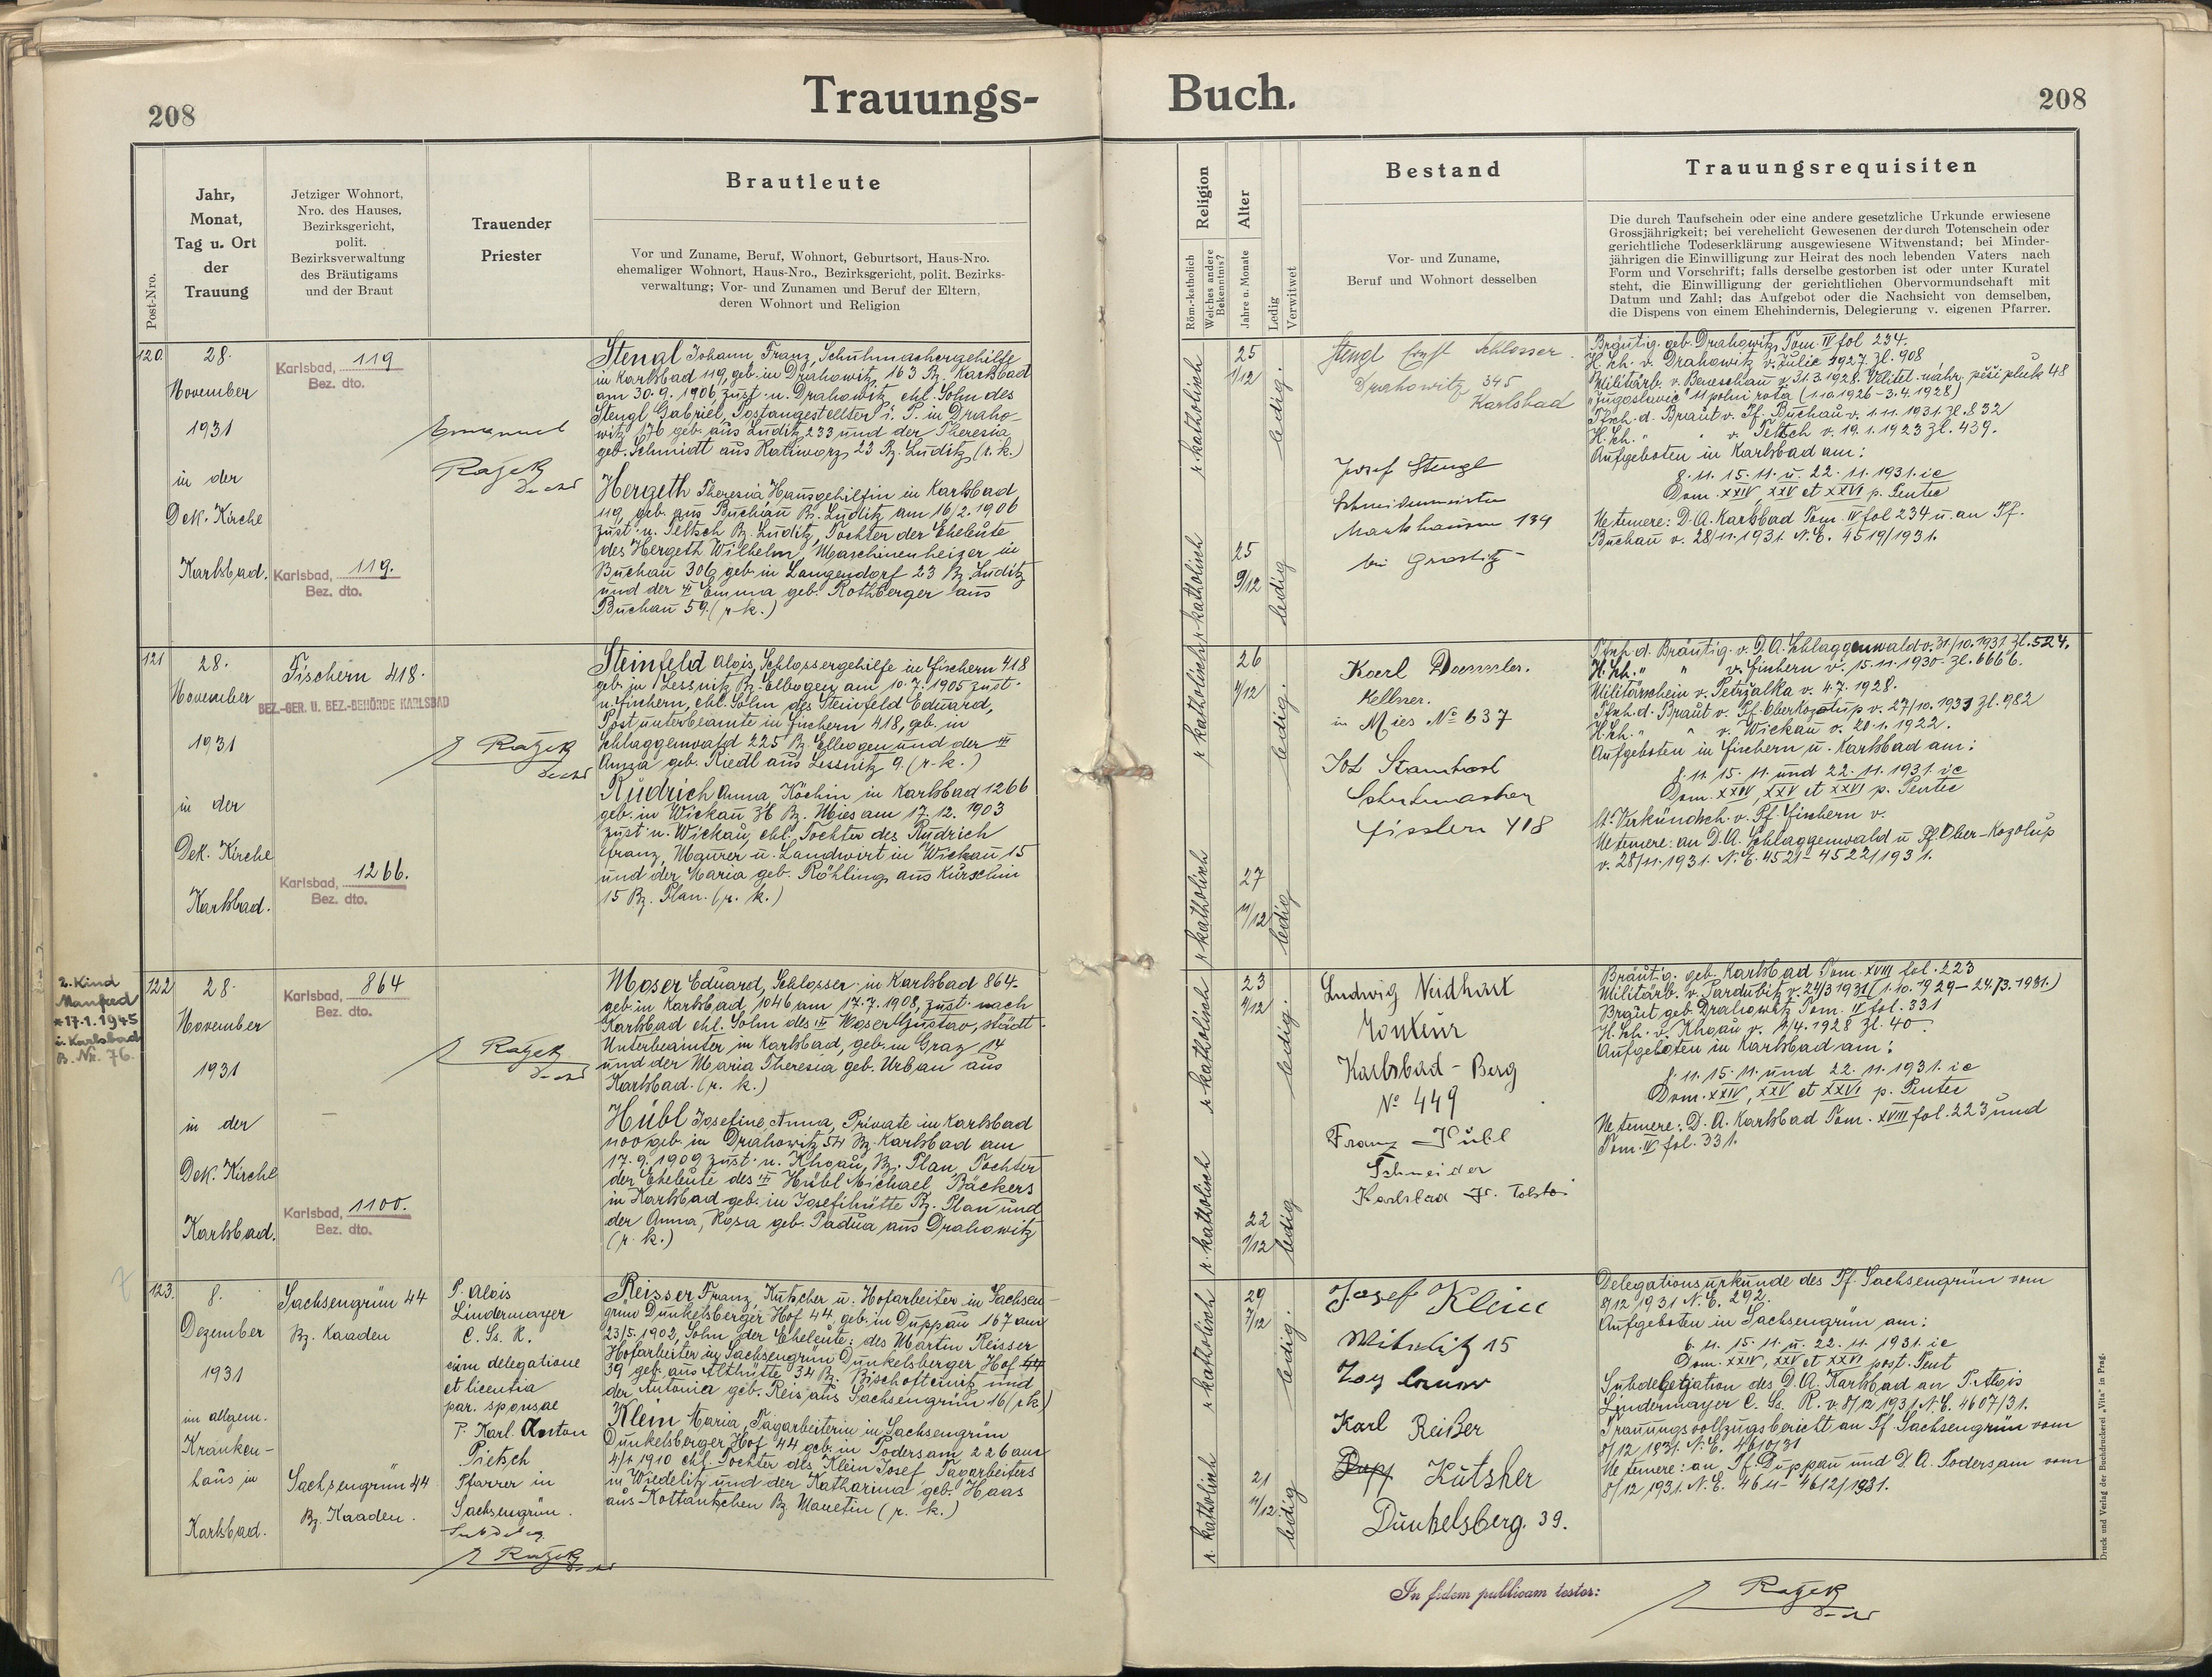 208
Trauungs-
Buch.
208
Post-Nro.
Jahr,
Monat,
Tag u. Ort
der
Trauung
Jetziger Wohnort,
Nro. des Hauses,
Bezirksgericht,
polit.
Bezirksverwaltung
des Bräutigams
und der Braut
Trauender
Priester
Brautleute
Vor und Zuname, Beruf, Wohnort, Geburtsort, Haus-Nro.
ehemaliger Wohnort, Haus-Nro., Bezirksgericht, polit. Bezirks-
verwaltung; Vor- und Zunamen und Beruf der Eltern,
deren Wohnort und Religion
Religion
Röm.-katholisch
Welches andere
Bekenntnis?
Alter
Jahre u. Monate
Ledig
Verwitwet
Bestand
Vor- und Zuname,
Beruf und Wohnort desselben
Trauungsrequisiten
Die durch Taufschein oder eine andere gesetzliche Urkunde erwiesene
Grossjährigkeit; bei verehelicht Gewesenen der durch Totenschein oder
gerichtliche Todeserklärung ausgewiesene Witwenstand; bei Minder-
jährigen die Einwilligung zur Heirat des noch lebenden Vaters nach
Form und Vorschrift; falls derselbe gestorben ist oder unter Kuratel
steht, die Einwilligung der gerichtlichen Obervormundschaft mit
Datum und Zahl; das Aufgebot oder die Nachsicht von demselben,
die Dispens von einem Ehehindernis, Delegierung v. eigenen Pfarrer.
120.
28.
November
1931
in der
Dek. Kirche
Karlsbad.
Karlsbad, 119
Bez. dto.
Karlsbad, 119.
Bez. dto.
Emmanuel
Ražek
Stengl Johann Franz, Schuhmachergehilfe
in Karlsbad 119, geb. in Drahowitz 163 Bz. Karlsbad
am 30.9.1906, zust. n. Drahowitz, ehl. Sohn des
Stengl Gabriel, Postangestellter i. P. in Draho-
witz 176 geb. aus Luditz 233 und der Theresia
geb. Schmidt aus Ratiworz 23 Bz. Luditz (r. k.)
Hergeth Theresia Hausgehilfin in Karlsbad
119, geb. aus Buchau Bz. Luditz am 16/2.1906
zust. n. Teltsch Bz. Luditz, Tochter der Eheleute
des Hergeth Wilhelm, Maschinenheizer in
Buchau 306 geb. in Langendorf 23 Bz. Luditz
und der Emma geb. Rothberger aus
Buchau 59. (r. k.)
r. katholisch
r. katholisch
25
1/12
25
9/12
ledig.
ledig
Stengl Ernst Schlosser.
Drahowitz 345
Karlsbad
Josef Stengl
Schneidermeister
Markhausen 134
bei Graslitz
Bräutig. geb. Drahowitz Tom. IV fol 234.
H. Sch. v. Drahowitz v. Julie 1927. Zl. 908
Militärb. v. Beneschau v. 31.3.1928. Velitel. náhr. pěší pluk 48
"Jugoslavie" 11 polní rota (1.10.1926–3.4.1928)
Tfsch. d. Braut v. Pf. Buchau v. 1.11.1931. Zl. 832
H. Sch. " " v. Teltsch v. 19.1.1923 Zl. 439.
Aufgeboten in Karlsbad am:
8.11. 15.11. u. 22.11.1931. ie
Dom. XXIV, XXV et XXVI p. Pentec
Ne temere: D. A. Karlsbad Tom. IV fol 234 u. an Pf.
Buchau v. 28/11.1931. N. E. 4519/1931.
121
28.
November
1931
in der
Dek. Kirche
Karlsbad.
Fischern 418.
BEZ.-GER. U. BEZ.-BEHÖRDE KARLSBAD
Karlsbad, 1266.
Bez. dto.
Ražek
Steinfeld Alois, Schlossergehilfe in Fischern 418
geb. in Lessnitz Bz. Elbogen am 10.7.1905 zust.
n. Fischern, ehl. Sohn des Steinfeld Eduard,
Postunterbeamte in Fischern 418, geb. in
Schlaggenwald 225 Bz. Elbogen und der
Anna geb. Riedl aus Lessnitz 9. (r. k.)
Rudrich Anna Köchin in Karlsbad 1266
geb. in Wickau 36 Bz. Mies am 17.12.1903
zust. n. Wickau, ehl. Tochter des Rudrich
Franz, Maurer u. Landwirt in Wickau 15
und der Maria geb. Röhling aus Kurschin
15 Bz. Plan. (r. k.)
r. katholisch
r. katholisch
26
4/12
27
11/12
ledig.
ledig
Karl
Kellner.
in Mies No 637
Schuhmacher
418
Tfsch. d. Bräutig. v. D. A. Schlaggenwald v. 31/10.1931. Zl. 524.
H. Sch. " " v. Fischern v. 15.11.1930. Zl. 6666.
Militärschein v. Petržalka v. 4.7.1928.
Tfsch. d. Braut v. Pf. Oberkozolup v. 27/10.1931 Zl. 982
H. Sch. " " v. Wickau v. 20.1.1922.
Aufgeboten in Fischern u. Karlsbad am:
8.11. 15.11. und 22.11.1931. ie
Dom. XXIV, XXV et XXVI p. Pentec
Verkündsch. v. Pf. Fischern v.
Ne temere: an D. A. Schlaggenwald u. Pf. Ober-Kozolup
v. 28/11.1931. N. E. 4521–4522/1931.
2. Kind
Manfred
*17.1.1945
i. Karlsbad
B. Nr. 76.
122
28.
November
1931
in der
Dek. Kirche
Karlsbad.
Karlsbad, 864
Bez. dto.
Karlsbad, 1100.
Bez. dto.
Ražek
Moser Eduard, Schlosser in Karlsbad 864.
geb. in Karlsbad, 1046 am 17.7.1908, zust. nach
Karlsbad ehl. Sohn des Moser Gustav, städt.
Unterbeamter in Karlsbad, geb. in Graz 14
und der Maria Theresia geb. Urban aus
Karlsbad. (r. k.)
Hübl Josefine, Anna, Private in Karlsbad
1100 geb. in Drahowitz 54 Bz. Karlsbad am
17.9.1909 zust. n. Khgau, Bz. Plan, Tochter
der Eheleute des Hübl Michael, Bäckers
in Karlsbad geb. in Josefihütte Bz. Plan und
der Anna, Rosa geb. Padua aus Drahowitz
(r. k.)
r. katholisch
r. katholisch
23
4/12
22
2/12
ledig.
ledig
Ludwig Neidhart
Monteur
Karlsbad-Berg
No 449
Franz Hübl
Schneider
Karlsbad
Bräutig. geb. Karlsbad Tom. XVIII fol. 223
Militärb. v. Pardubitz v. 24/3 1931 (1.10.1929–24./3.1931.)
Braut geb. Drahowitz Tom. IV fol. 331
H. Sch. v. Khgau v. 2/4.1928 Zl. 40.
Aufgeboten in Karlsbad am:
8.11. 15.11. und 22.11.1931. ie
Dom. XXIV, XXV et XXVI p. Pentec
Ne temere: D. A. Karlsbad Tom. XVIII fol. 223 und
Tom. IV fol. 331.
123.
8.
Dezember
1931
im allgem.
Kranken-
haus in
Karlsbad.
Sachsengrün 44
Bz. Kaaden
Sachsengrün 44
Bz. Kaaden.
P. Alois
Lindermayer
C. Ss. R.
cum delegatione
et licentia
par. sponsae
P. Karl Anton
Pietsch
Pfarrer in
Sachsengrün.
Ražek
Reisser Franz, Kutscher u. Hofarbeiter in Sachsen-
grün Dunkelsberger Hof 44, geb. in Duppau 167 am
23/5.1902, Sohn der Eheleute: des Martin Reisser
Hofarbeiter in Sachsengrün Dunkelsberger Hof 44
39 geb. aus Althütte 34 Bz. Bischofteinitz und
der Antonia geb. Reis aus Sachsengrün 16 (r. k.)
Klein Maria, Tagarbeiterin in Sachsengrün
Dunkelsberger Hof 44 geb. in Podersam 226 am
4/1.1910 ehl. Tochter des Klein Josef Tagarbeiters
in Wiedelitz und der Katharina geb. Haas
aus Kottantschen Bz. Manetin (r. k.)
r. katholisch
r. katholisch
29
7/12
21
11/12
ledig.
ledig
Josef Klein
15
Karl Reißer
Kutsher
Dunkelsberg. 39.
Delegationsurkunde des Pf. Sachsengrün vom
8/12 1931 N. E. 292.
Aufgeboten in Sachsengrün am:
6.11. 15.11. u. 22.11.1931. ie
Dom. XXIV, XXV et XXVI post. Pent
Subdelegation des D. A. Karlsbad an P. Alois
Lindermayer C. Ss. R. v. 8/12 1931 N. E. 4607/31.
Trauungsvollzugsbericht an Pf. Sachsengrün vom
8/12 1931. N. E. 4610/31
Ne temere: an Pf. Duppau und D. A. Podersam vom
8/12 1931. N. E. 4611–4612/1931.
In fidem publicam testor:
Ražek
Druck und Verlag der Buchdruckerei „Vita" in Prag.